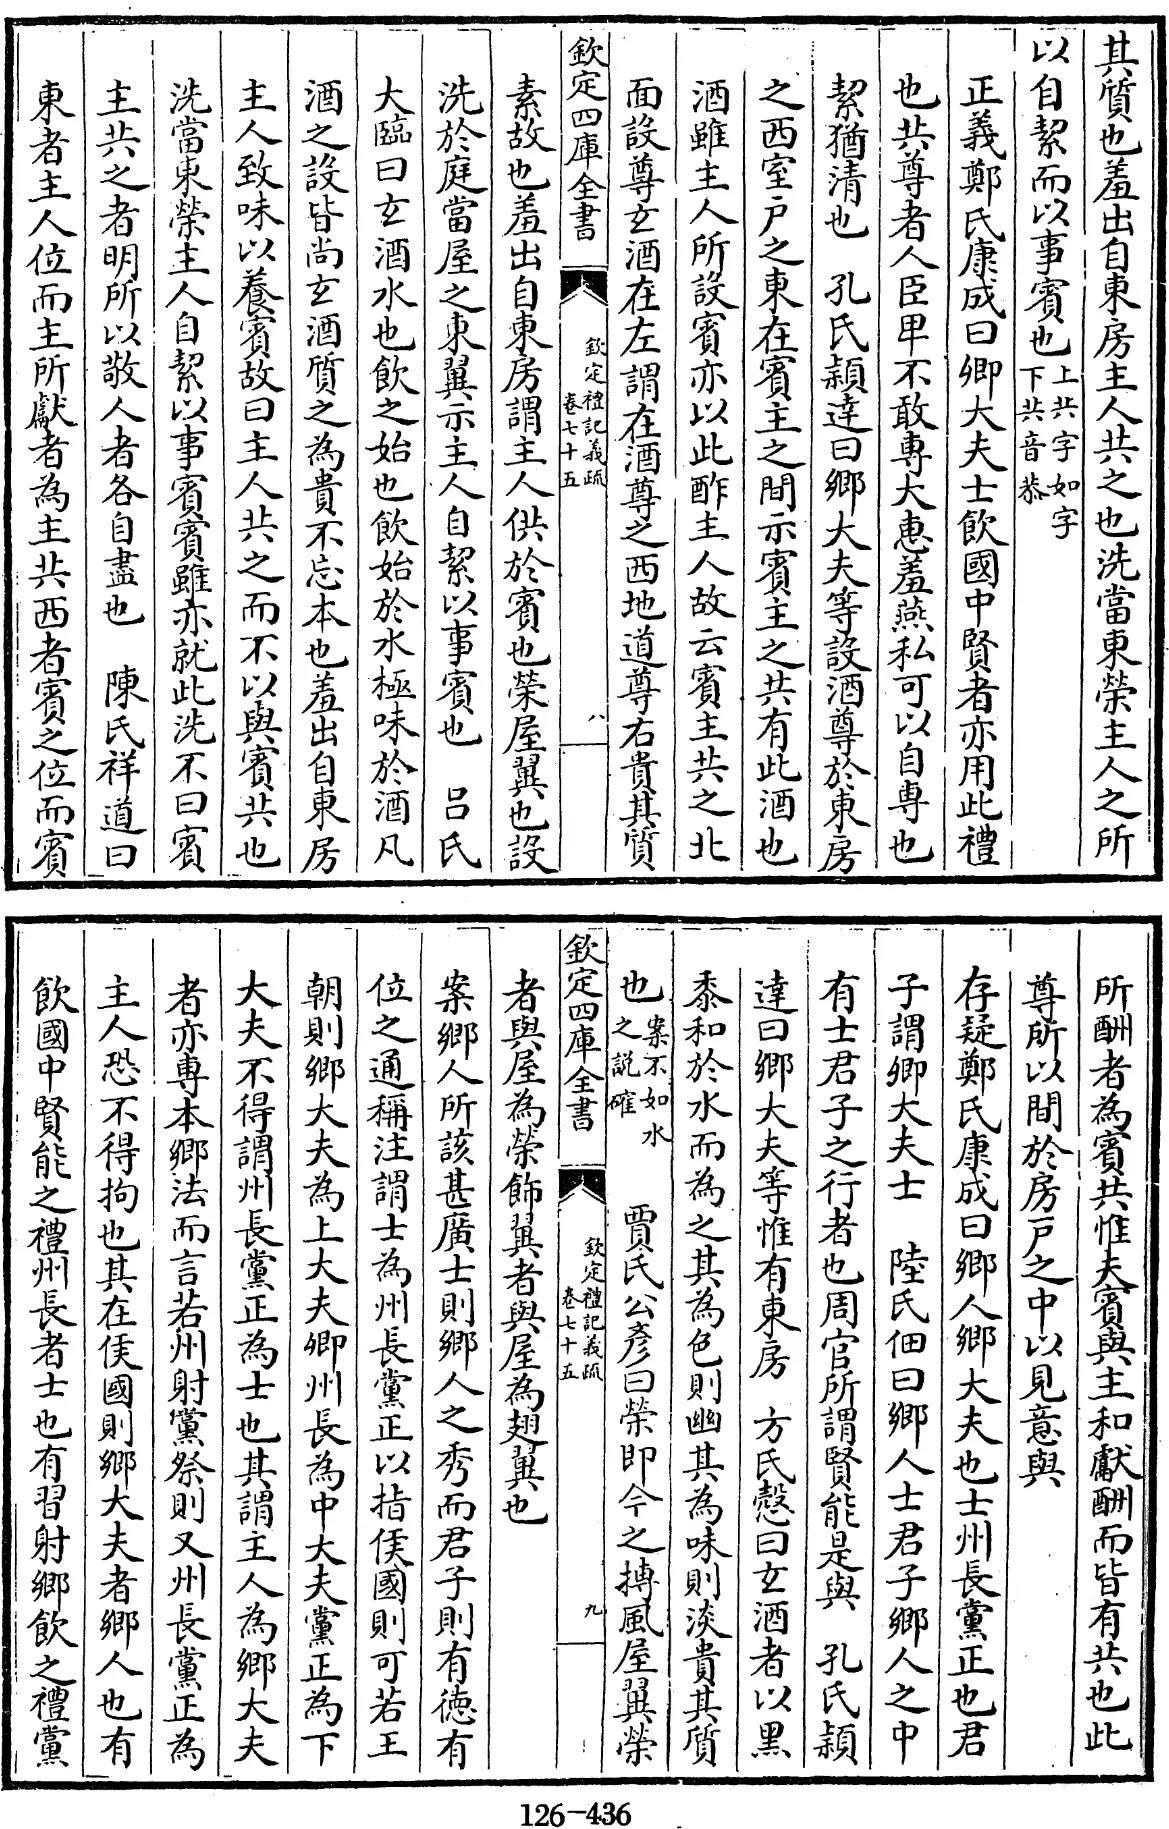 其質也羞出自東房主人共之也洗當東榮主人之所
以自絜而以事賓也上共字如字下共音恭
正義鄭氏康成曰卿大夫士飲國中賢者亦用此禮
也共尊者人臣卑不敢專大惠羞燕私可以自專也
絜猶清也 孔氏穎達曰鄉大夫等設酒尊於東房
之西室戶之東在賓主之間示賓主之共有此酒也
酒雖主人所設賓亦以此酢主人故云賓主共之北
面設尊玄酒在左謂在酒尊之西地道尊右貴其質
欽定四庫全書 欽定禮記義疏 卷七十五 八
素故也羞出自東房謂主人供於賓也榮屋翼也設
洗於庭當屋之東翼示主人自絜以事賓也 呂氏
大臨曰玄酒水也飲之始也飲始於水極味於酒凡
酒之設皆尚玄酒質之為貴不忘本也羞出自東房
主人致味以養賓故曰主人共之而不以與賓共也
洗當東榮主人自絜以事賓賓雖亦就此洗不曰賓
主共之者明所以敬人者各自盡也 陳氏祥道曰
東者主人位而主所獻者為主共西者賓之位而賓
所酬者為賓共惟夫賓與主和獻酬而皆有共也此
尊所以間於房戶之中以見意與
存疑鄭氏康成曰鄉人鄉大夫也士州長黨正也君
子謂卿大夫士 陸氏佃曰鄉人士君子鄉人之中
有士君子之行者也周官所謂賢能是與 孔氏穎
達曰鄉大夫等惟有東房 方氏慤曰玄酒者以黑
黍和於水而為之其為色則幽其為味則淡貴其質
也案不如水之說確 賈氏公彥曰榮即今之摶風屋翼榮
欽定四庫全書 欽定禮記義疏 卷七十五 九
者與屋為榮飾翼者與屋為翅翼也
案鄉人所該甚廣士則鄉人之秀而君子則有德有
位之通稱注謂士為州長黨正以指侯國則可若王
朝則鄉大夫為上大夫卿州長為中大夫黨正為下
大夫不得謂州長黨正為士也其謂主人為鄉大夫
者亦專本鄉法而言若州射黨祭則又州長黨正為
主人恐不得拘也其在侯國則鄉大夫者鄉人也有
飲國中賢能之禮州長者士也有習射鄉飲之禮黨
126-436